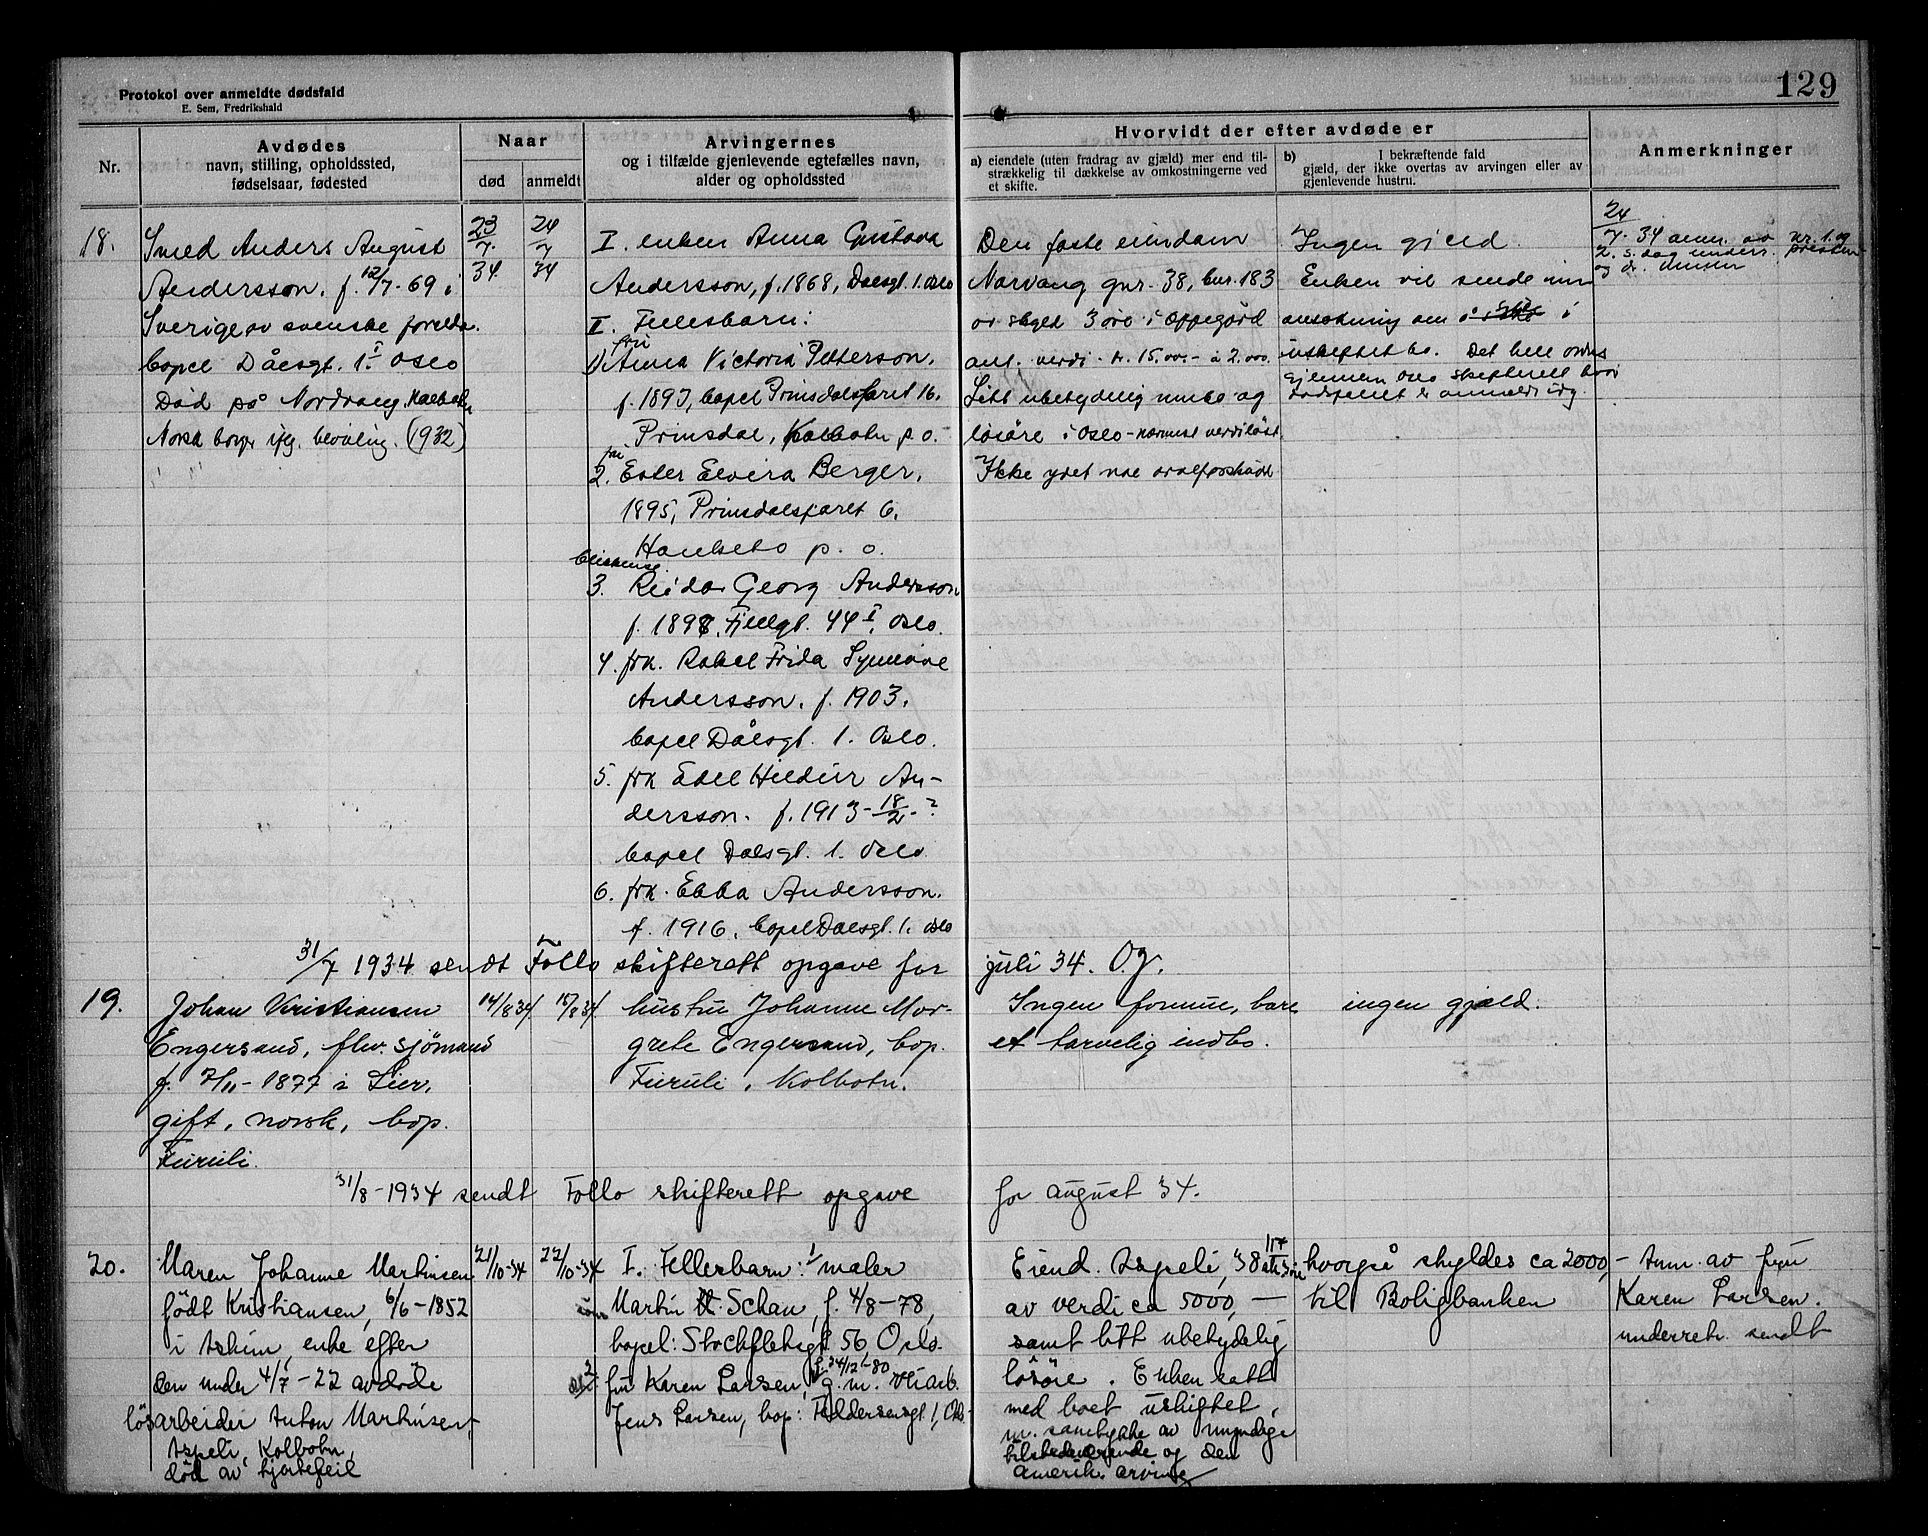 Protokol over anmeldte dødsfald
E. Sem, Fredrikshald
129
Nr.
Avdødes
navn, stilling, opholdssted,
fødselsaar, fødested
Naar
død
anmeldt
Arvingernes
og i tilfælde gjenlevende egtefælles navn,
alder og opholdssted
Hvorvidt der efter avdøde er
a) eiendele (uten fradrag av gjæld) mer end til-
strækkelig til dækkelse av omkostningerne ved
et skifte.
b) I bekræftende fald
gjæld, der ikke overtas av arvingen eller av
gjenlevende hustru.
Anmerkninger
18.
Smed Anders August
Andersson. f. 12/7-69 i
Sverige av svenske foreldre.
bopel Dålsgt. 1 I Oslo
Død på Nordvang, Kolbotn
Norsk borger ifg. bevilling. (1932)
" "
23/7 34
24/7 34
I. enken Anna Gustava
Andersson, f. 1868, Daelsgt. 1. Oslo
II. Fellesbarn:
fru
1) Anna Victoria Petterson.
f. 1893, bopel Prinsdalsfaret 16.
Prinsdal, Kolbotn p.o.
fru
2. Ester Elvira Berger,
1895, Prinsdalsfaret 6.
Hauketo p. o.
blikkensl.
3. Reidar Georg Andersson
f. 1898, Fjellgt. 44 I, Oslo.
4. frk. Rakel Frida Synnøve
Andersson. f. 1903.
bopel Dålsgt. 1. Oslo.
5. frk Edel Hildur An-
dersson. f. 1913-18/2-?
bopel Dålsgt. 1. Oslo
6. frk. Ebba Andersson.
f. 1916. bopel Daelsgt. 1. Oslo
Den faste eiendom
Norvang gnr. 38, bnr. 183
av skyld 3 øre i Oppegård
ant. verdi - kr. 15.000.- à 2.000.
Litt ubetydelig innbo og
løsøre i Oslo - nærmest verdiløst.
Ikke ydet noe arveforskudd
Ingen gjeld.
Enken vil sende inn
ansøkning om i
uskiftet bo. Det hele ordnes
gjennem Oslo skifterett hvor
dødsfallet er anmeldt idag.
24/7-34 anm. av nr. 1. og
2. s. dag underr. presten
og dr.
31/7 1934 sendt Follo skifterett opgave for juli 34. O.g.
19.
Johan Kristiansen
Engersand, fhv. sjømand
f. 7/11-1877 i Lier,
gift, norsk, bop.
Furuli.
14/8 34
15/8 34
hustru Johanne Mar-
grete Engersand, bop.
Furuli, Kolbotn.
Ingen formue, bare
et tarvelig indbo.
ingen gjæld.
31/8-1934 sendt Follo skifterett opgave for august 34.
20.
Maren Johanne Martinsen
født Kristiansen, 6/6-1852
i Askim, enke efter
den under 4/7-22 avdøde
løsarbeider Anton Martinsen,
Aspeli, Kolbotn,
død av hjertefeil
21/10-34
22/10-34
I. Fellesbarn: 1/ maler
Martin Schau, f. 4/8-78,
bopel: Stockflethsgt. 56 Oslo.
2 fru Karen Larsen, f. 24/12-80 g. m. arb.
Jens Larsen, bop: Fældersensgt. 1, Oslo
Eiend. Aspeli, 38/117
av verdi ca 5000,-
samt litt ubetydelig
løsøre. Enken satt
med boet uskiftet,
m. samtykke av myndige
tilstedeværende og den
amerik. arving
hvorpå skyldes ca 2000,-
til Boligbanken
Anm. av fru
Karen Larsen.
underretn. sendt